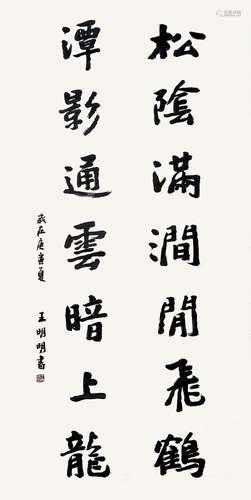 松陰滿澗閒飛鶴
潭影通雲暗上龍
歲在庚寅夏
王明明書